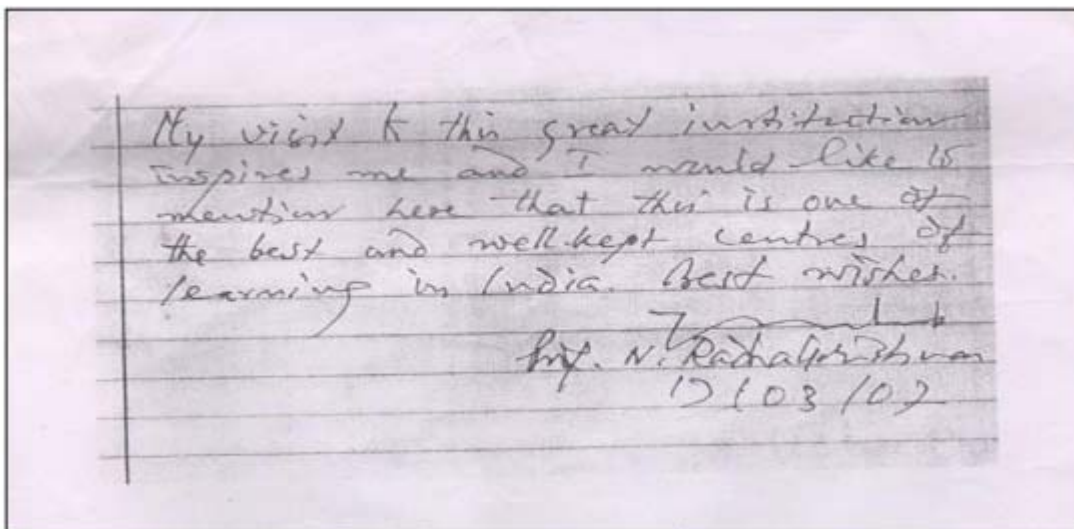 My visit to this great institution
inspires me and I would like to
mention here that this is one of
the best and well-kept centres of
learning in India. Best wishes.
Prof. N. Radhakrishnan
17/03/07